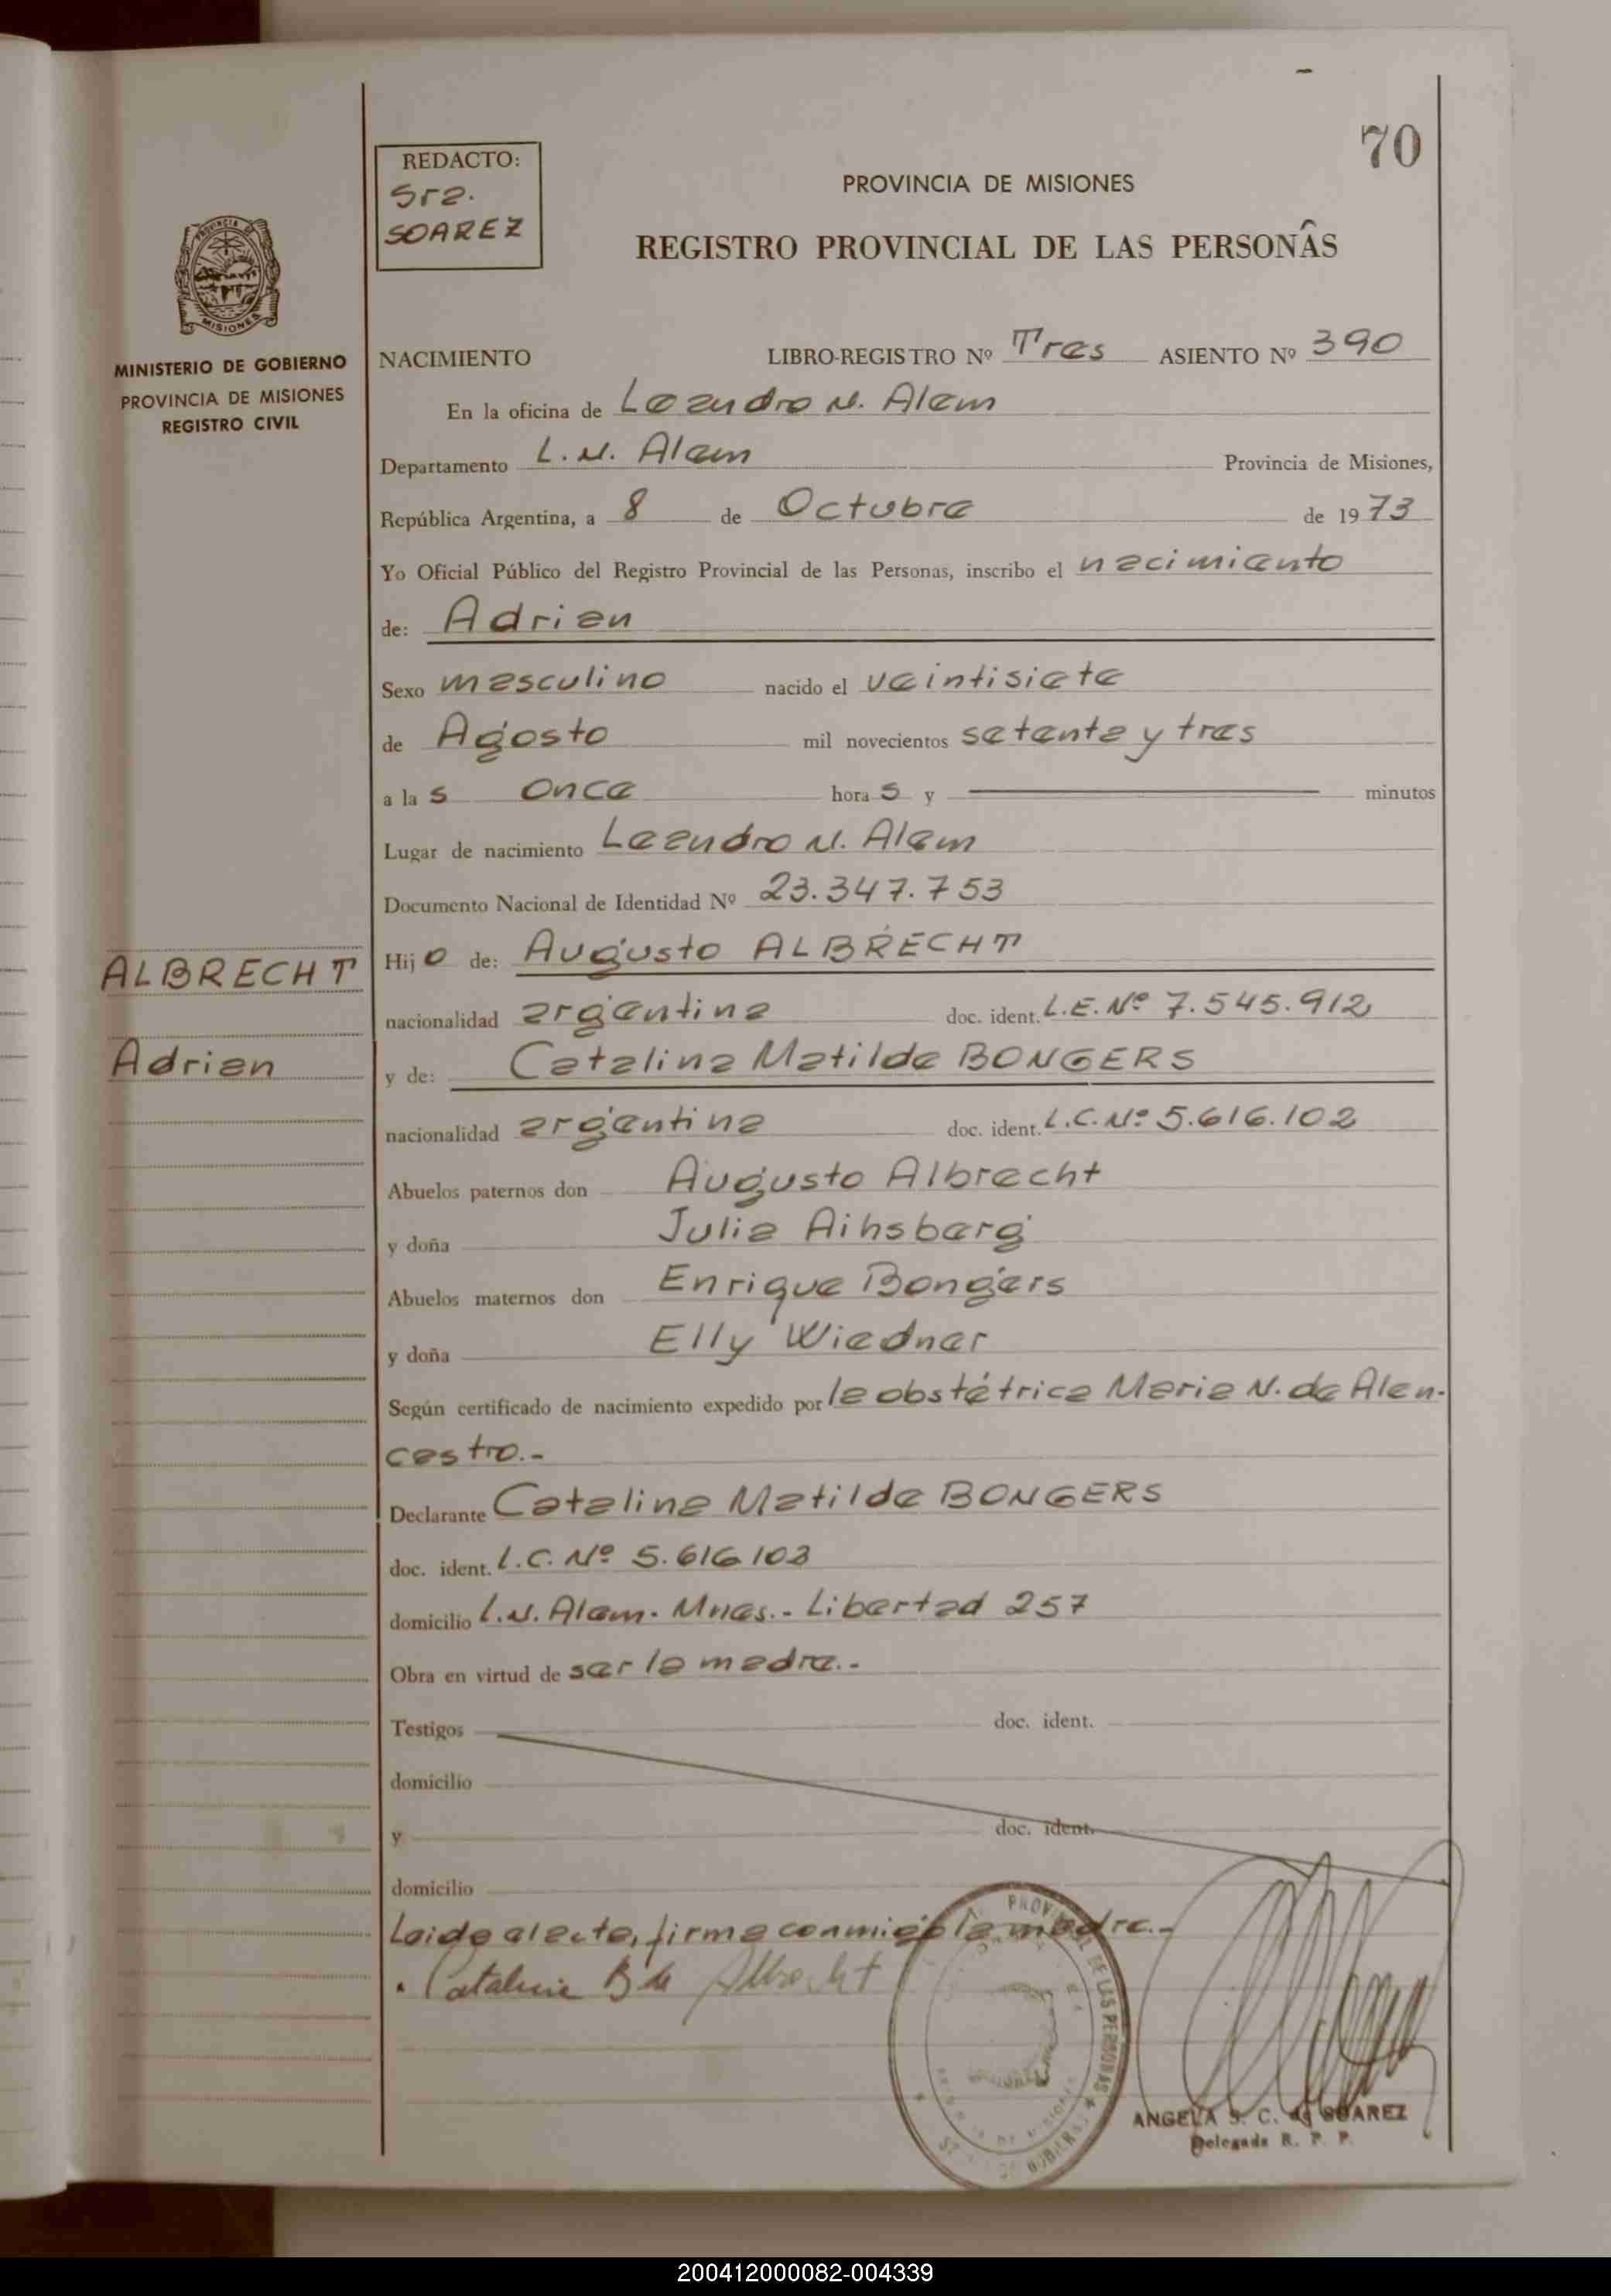 70
REDACTO:
Sra.
SOAREZ
PROVINCIA DE MISIONES
REGISTRO PROVINCIAL DE LAS PERSONAS
PROVINCIA DE
MISIONES
MINISTERIO DE GOBIERNO
PROVINCIA DE MISIONES
REGISTRO CIVIL
NACIMIENTO LIBRO-REGISTRO Nº Tres ASIENTO Nº 390
En la oficina de Leandro N. Alem
Departamento L. N. Alem Provincia de Misiones,
República Argentina, a 8 de Octubre de 1973
Yo Oficial Público del Registro Provincial de las Personas, inscribo el nacimiento
de: Adrian
Sexo masculino nacido el veintisiete
de Agosto mil novecientos setenta y tres
a las once horas y minutos
Lugar de nacimiento Leandro N. Alem
Documento Nacional de Identidad Nº 23.347.753
ALBRECHT
Adrian
Hijo de: Augusto ALBRECHT
nacionalidad argentina doc. ident. L.E. Nº 7.545.912
y de: Catalina Matilde BONGERS
nacionalidad argentina doc. ident. L.C. Nº 5.616.102
Abuelos paternos don Augusto Albrecht
y doña Julia Aihsberg
Abuelos maternos don Enrique Bongers
y doña Elly Wiedner
Según certificado de nacimiento expedido por la obstétrica Maria N. de Alen-
castro.-
Declarante Catalina Matilde BONGERS
doc. ident. L.C. Nº 5.616.102
domicilio L.N. Alem. Mnes.- Libertad 257
Obra en virtud de ser la madre.-
Testigos doc. ident.
domicilio
y doc. ident.
domicilio
Leida el acta, firma conmigo la madre.-
Catalina B de Albrecht
DE LAS PERSONAS
ANGELA S. C. de SOAREZ
Delegada R. P. P.
200412000082-004339